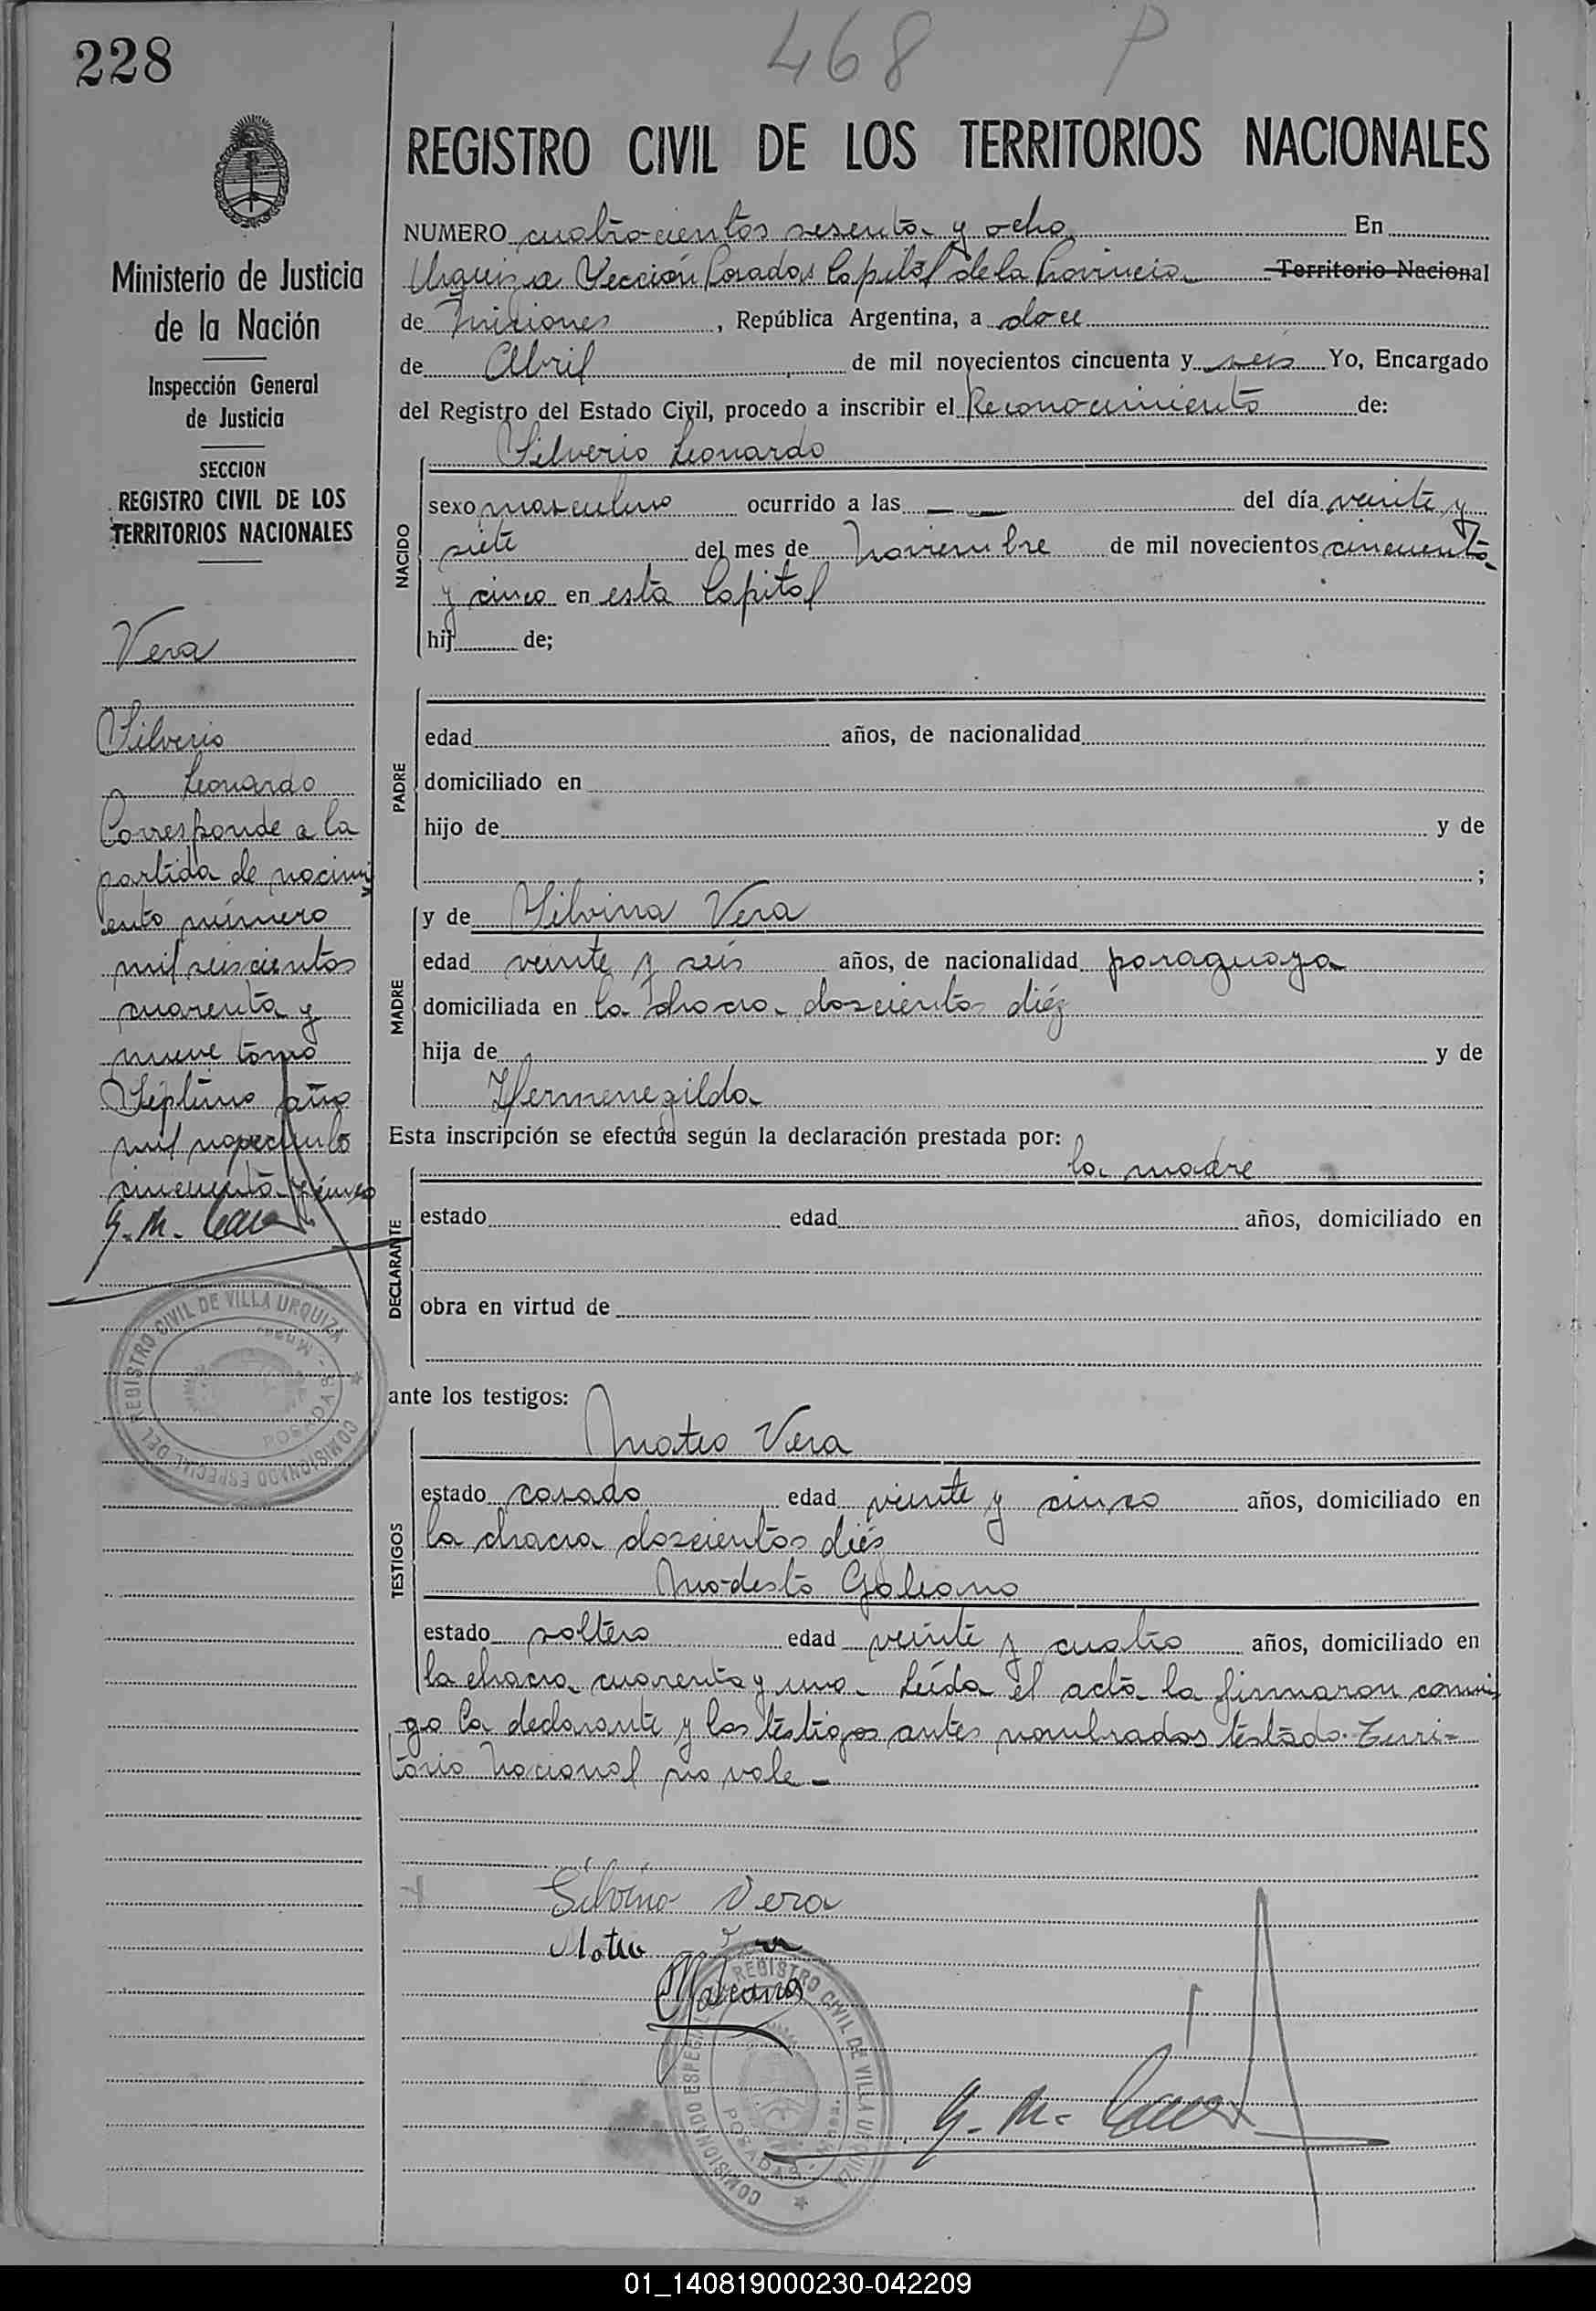 228
468 P
REGISTRO CIVIL DE LOS TERRITORIOS NACIONALES
Ministerio de Justicia
de la Nación
Inspección General
de Justicia
SECCION
REGISTRO CIVIL DE LOS
TERRITORIOS NACIONALES
Vera
Silverio
Leonardo
Corresponde a la
partida de nacimi
ento número
mil seiscientos
cuarenta y
nueve tomo
Séptimo año
mil novecientos
cincuenta y cinco
G. M.
COMISIONADO ESPECIAL DEL REGISTRO CIVIL DE VILLA URQUIZA
POSADAS - Mnes.
NUMERO cuatrocientos sesenta y ocho En
Urquiza Sección Posadas Capital de la Provincia Territorio Nacional
de Misiones, República Argentina, a doce
de Abril de mil novecientos cincuenta y seis Yo, Encargado
del Registro del Estado Civil, procedo a inscribir el Reconocimiento de:
NACIDO
Silverio Leonardo
sexo masculino ocurrido a las — — del día veinte y
siete del mes de noviembre de mil novecientos cincuenta
y cinco en esta Capital
hij de;
PADRE
edad años, de nacionalidad
domiciliado en
hijo de y de
;
MADRE
y de Silvina Vera
edad veinte y seis años, de nacionalidad paraguaya
domiciliada en la chacra doscientos diéz
hija de y de
Hermenegilda
Esta inscripción se efectúa según la declaración prestada por:
la madre
DECLARANTE
estado edad años, domiciliado en
obra en virtud de
ante los testigos:
TESTIGOS
Mateo Vera
estado casado edad veinte y cinco años, domiciliado en
la chacra doscientos diés
Modesto Galeano
estado soltero edad veinte y cuatro años, domiciliado en
la chacra cuarenta y uno. Leída el acta la firmaron conmi
go la declarante y los testigos antes nombrados testado: Terri=
torio Nacional no vale -
Silvina Vera
Mateo Vera
MGaleano
COMISIONADO ESPECIAL DEL REGISTRO CIVIL DE VILLA URQUIZA
POSADAS - Mnes.
G. M.
01_140819000230-042209